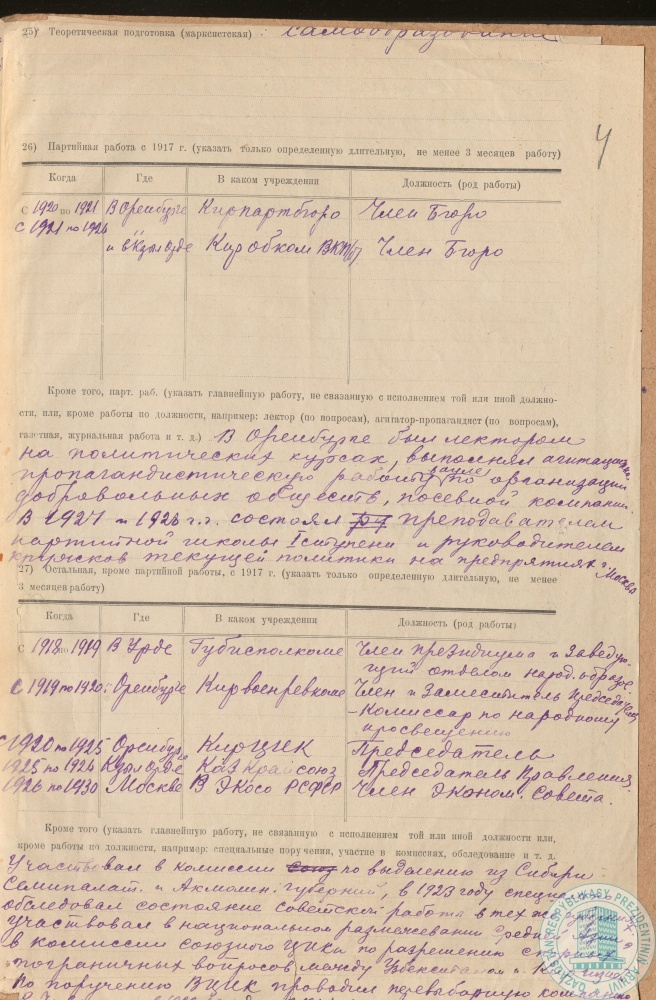 25) Теоретическая подготовка (марксистская) самообразование
4
26) Партийная работа с 1917 г. (указать только определенную длительную, не менее 3 месяцев работу)
Когда Где В каком учреждении Должность (род работы)
С 1920 по 1921 В Оренбурге Кирпартбюро Член Бюро
С 1921 по 1926 "
и в Кзыл Орде Киробком ВКП(б) Член Бюро
Кроме того, парт. раб. (указать главнейшую работу, не связанную с исполнением той или иной должно-
сти, или, кроме работы по должности, например: лектор (по вопросам), агитатор-пропагандист (по вопросам),
газетная, журнальная работа и т. д.) В Оренбурге был лектором
на политических курсах, выполнял агитацион.
пропагандистическую работу по организации
добровольных обществ, посевной компании.
В 1927 и 1928 г.г. состоял преподавателем
партийной школы I ступени и руководителем
кружков текущей политики на предприятиях г. Москвы
27) Остальная, кроме партийной работы, с 1917 г. (указать только определенную длительную, не менее
3 месяцев работу)
Когда Где В каком учреждении Должность (род работы)
С 1918 по 1919 В Урде Губисполкоме Член президиума и Заведую-
щий отделом народ. образ.
С 1919 по 1920 Оренбурге Кирвоенревкоме Член и Заместитель Председателя
- Комиссар по народному
просвещению
С 1920 по 1925 Оренбурге КирЦИК Председатель
1925 по 1926 Кзыл Орде Казкрайсоюз Председатель Правления
1926 по 1930 Москве В ЭКОСО РСФСР Член Эконом. Совета.
Кроме того (указать главнейшую работу, не связанную с исполнением той или иной должности или,
кроме работы по должности, например: специальные поручения, участие в комиссиях, обследование и т. д.
Участвовал в комиссии по выделению из Сибири
Семипалат. и Акмолин. губерний, в 1923 году
обследовал состояние советской работы в тех же
участвовал в национальном размежевании
в комиссии союзного ЦИКа по разрешению
пограничных вопросов между Узбекстаном и
По поручению ВЦИК проводил перевыборную компанию